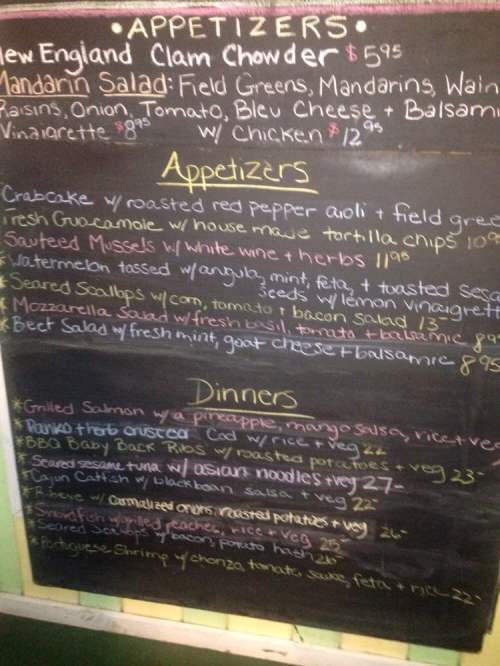 • APPETIZERS •
New England Clam Chowder $5.95
Mandarin Salad: Field Greens, Mandarins, Waln
Raisins, Onion, Tomato, Bleu Cheese + Balsami
Vinaigrette $8.95 w/ Chicken $12.95
Appetizers
Crabcake w/ roasted red pepper aioli + field gree
Fresh Guacamole w/ house made tortilla chips 10.95
* Sauteed Mussels w/ white wine + herbs 11.95
* Watermelon tossed w/ arugula, mint, feta, + toasted sesa
seeds w/ lemon vinaigrett
* Seared Scallops w/ corn, tomato + bacon salad 13-
* Mozzarella Salad w/ fresh basil, tomato + balsamic 8.95
* Beet Salad w/ fresh mint, goat cheese + balsamic 8.95
Dinners
* Grilled Salmon w/ a pineapple, mango salsa, rice + veg
* Panko + herb crusted Cod w/ rice + veg 22
* BBQ Baby Back Ribs w/ roasted potatoes + veg 23-
* Seared sesame tuna w/ asian noodles + veg 27-
* Cajun Catfish w/ blackbean salsa + veg 22-
* Ribeye w/ carmalized onions, roasted potatoes + veg 26-
* Swordfish w/ grilled peaches, rice + veg 25-
* Seared Scallops w/ bacon, potato hash 26-
* Portuguese Shrimp w/ chorizo, tomato sauce, feta + rice 22-